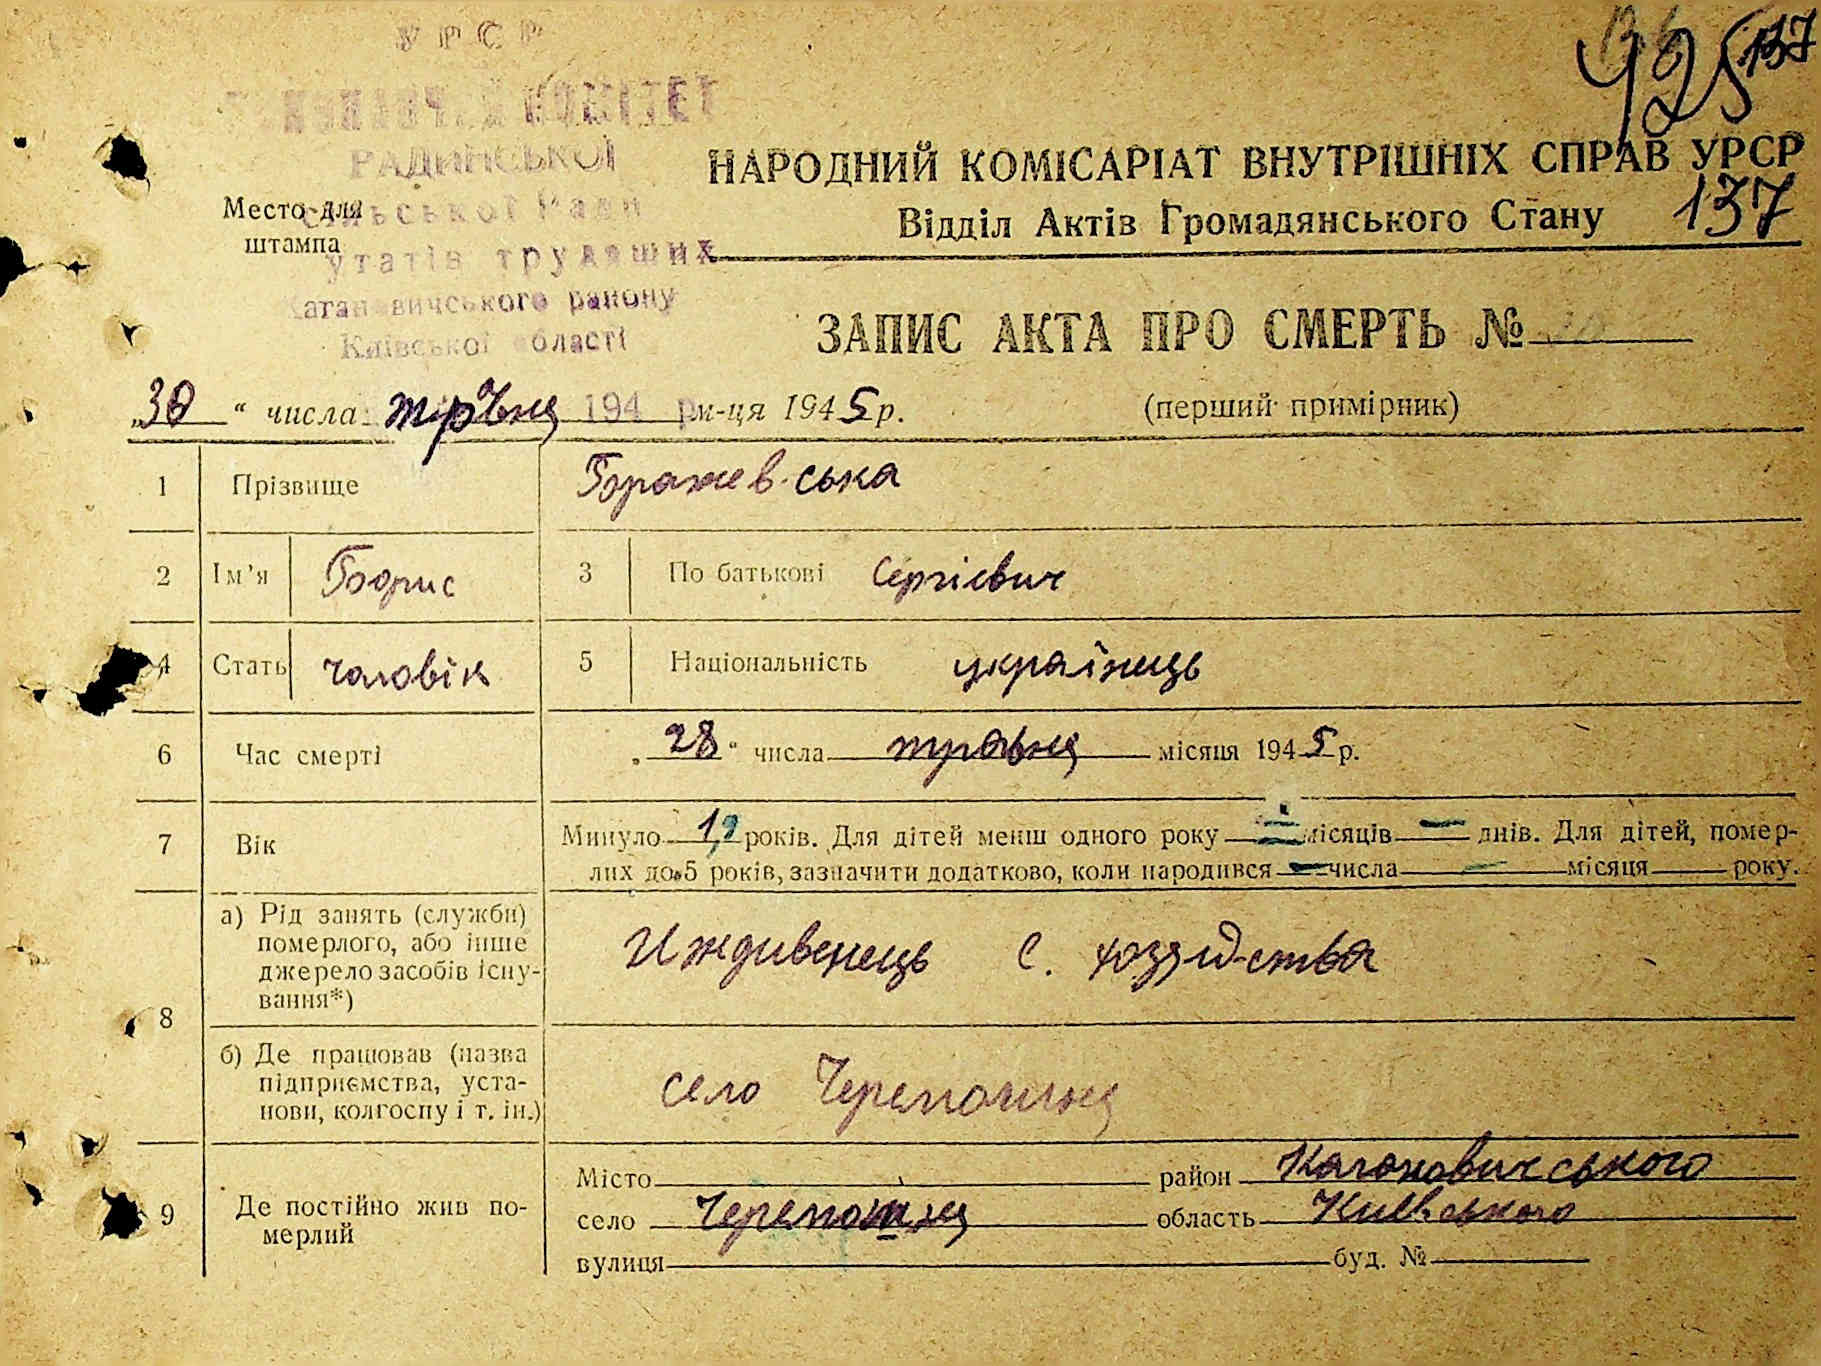 УРСР
КОМІТЕТ
РАДИНСЬКОЇ
сільської Ради
утатів трудящих
Кагановичського району
Київської області
Место для
штампа
425 137
НАРОДНИЙ КОМІСАРІАТ ВНУТРІШНІХ СПРАВ УРСР
Відділ Актів Громадянського Стану 137
ЗАПИС АКТА ПРО СМЕРТЬ №
„30“ числа травня 194 р м-ця 1945 р. (перший примірник)
1 Прізвище Боражевська
2 Ім'я Борис 3 По батькові Сергієвич
4 Стать чоловік 5 Національність українець
6 Час смерті „28“ числа травня місяця 1945 р.
7 Вік Минуло років. Для дітей менш одного року — місяців — днів. Для дітей, помер-
лих до 5 років, зазначити додатково, коли народився — числа — місяця року.
8 а) Рід занять (служби) померлого, або інше джерело засобів існу-вання*) Иждивенець с. хозяйства
б) Де працював (назва підприємства, уста-нови, колгоспу і т. ін.) село
9 Де постійно жив по-мерлий
Місто район Кагановичського
село область Київського
вулиця буд. №